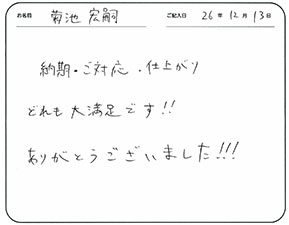 お名前 菊池 宏嗣 ご記入日 26年 12月 13日
納期・ご対応・仕上がり
どれも大満足です!!
ありがとうございました!!!